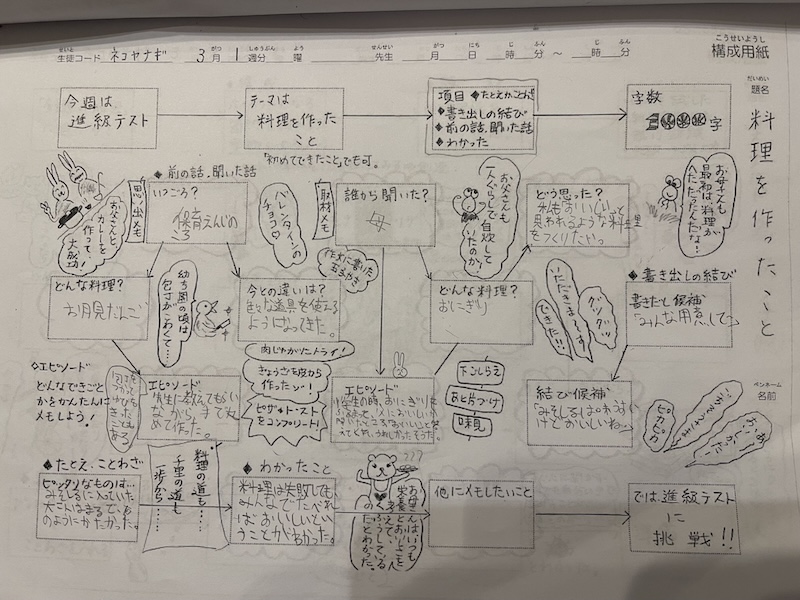 こうせいようし
構成用紙
せいと
生徒コード ネコヤナギ
がつ しゅうぶん よう
3月 1週分 曜
せんせい がつ にち じ ふん じ ふん
先生 月 日 時 分 ～ 時 分
だいめい
題名
料理を作ったこと
ペンネーム
名前
今週は
進級テスト
テーマは
料理を作った
こと
「初めてできたこと」でも可。
項目 ◆たとえかことわざ
◆書き出しの結び
◆前の話、聞いた話
◆わかった
字数
字
◆前の話、聞いた話
思い出メモ
お父さんと、
カレーを
作って、
大成功!
いつごろ?
保育えんじの
ころ
バレンタインの
チョコ♡
取材メモ
誰から聞いた?
母
作文に書いた
お父さんも
一人ぐらしで自炊して
いたのか!
どう思った?
私も「おいしい」って
思われるような料理
をつくりたい。
お母さんも
最初は料理が
へただったんだな…
どんな料理?
お月見だんご
幼ち園の頃は
包丁がこわくて…
今との違いは?
色々な道具を使える
ようになってきた。
どんな料理?
おにぎり
グツグツ
いただきまーす!
できた!!
◆書き出しの結び
書きだし候補
「みんな用意して」
◇エピソード
どんなできごと
かをかんたんに
メモしよう!
エピソード
先生に教えてもらい
ながら、手で丸
めて作った。
肉じゃがにトライ!
ぎょうざを皮から
作ったゾー!
ピザ&トーストを
コンプリート!
エピソード
下ごしらえ
あと片づけ
味見
結び候補
ピカピカ
◆たとえ、ことわざ
ピッタリなものは…
みそしるに入っていた
大こんはまるで、石
のようにかたかった。
料理の道も……
千里の道も
一歩から…
◆わかったこと
料理は失敗しても、
みんなでたべれ
ばおいしいとい
うことがわかった。
お母さんはいつも
栄養と
のだとわかった。
他にメモしたいこと
では、進級テスト
に
挑戦!!